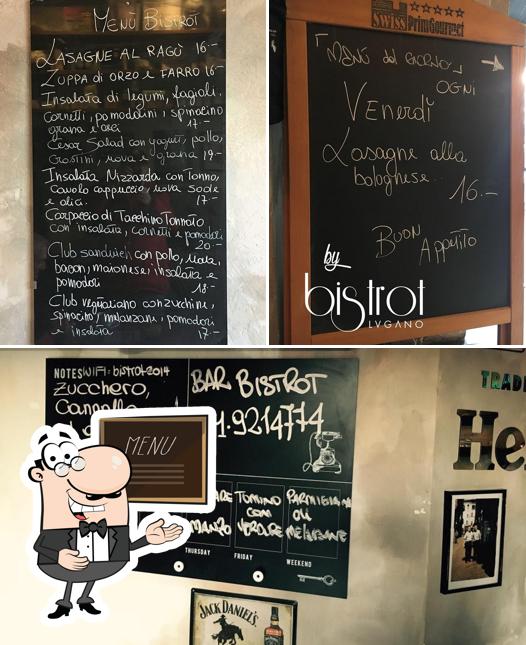 MENÙ BISTROT
LASAGNE AL RAGÙ 16.-
ZUPPA di ORZO e FARRO 16-
Insalata di legumi, fagioli,
Cornetti, pomodorini, spinacino
grana e ceci 17.-
Cesar Salad con yogurt, pollo,
Crostini, uova e grana 19-
Insalata Nizzarda con Tonno,
Cavolo cappuccio, uova sode
e olive. 17.-
Carpaccio di Tacchino Tonnato
con insalata, cornetti e pomodori
20.-
Club sandwich con pollo,
bacon, maionese, insalata e
pomodori 18.-
Club vegetariano con zucchine,
spinacino, melanzane, pomodori
e insalata 17.-
Swiss PrimGourmet
MENÙ del GIORNO
OGNI
Venerdì
Lasagne alla
bolognese..
16.-
BUON
Appetito
by
bistrot
LVGANO
NOTES WIFI = bistrot-2014
Zucchero,
BAR BISTROT
1.9214774
MENU
TOMINO PARMIGIANA
MANZO CON DI
VERDURE MELANZANE
THURSDAY FRIDAY WEEKEND
TRADI
He
JACK DANIEL'S